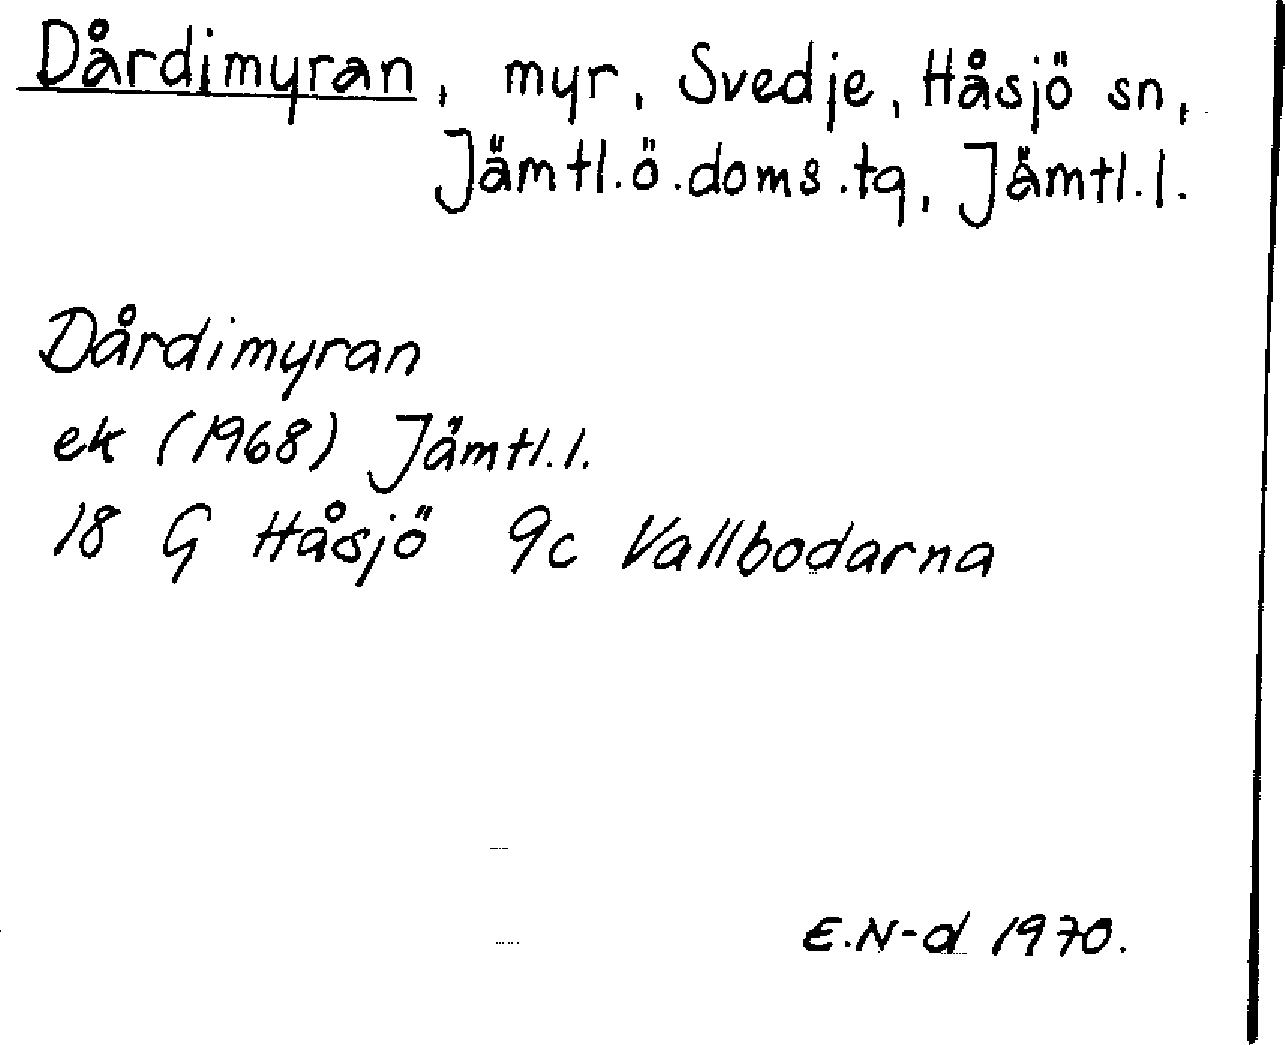 Dårdimyran, myr, Svedje, Håsjö sn,
Jämtl.ö.doms.tg, Jämtl.l.
Dårdimyran
ek (1968) Jämtl.l.
18 G Håsjö 9c Vallbodarna
E.N-d 1970.